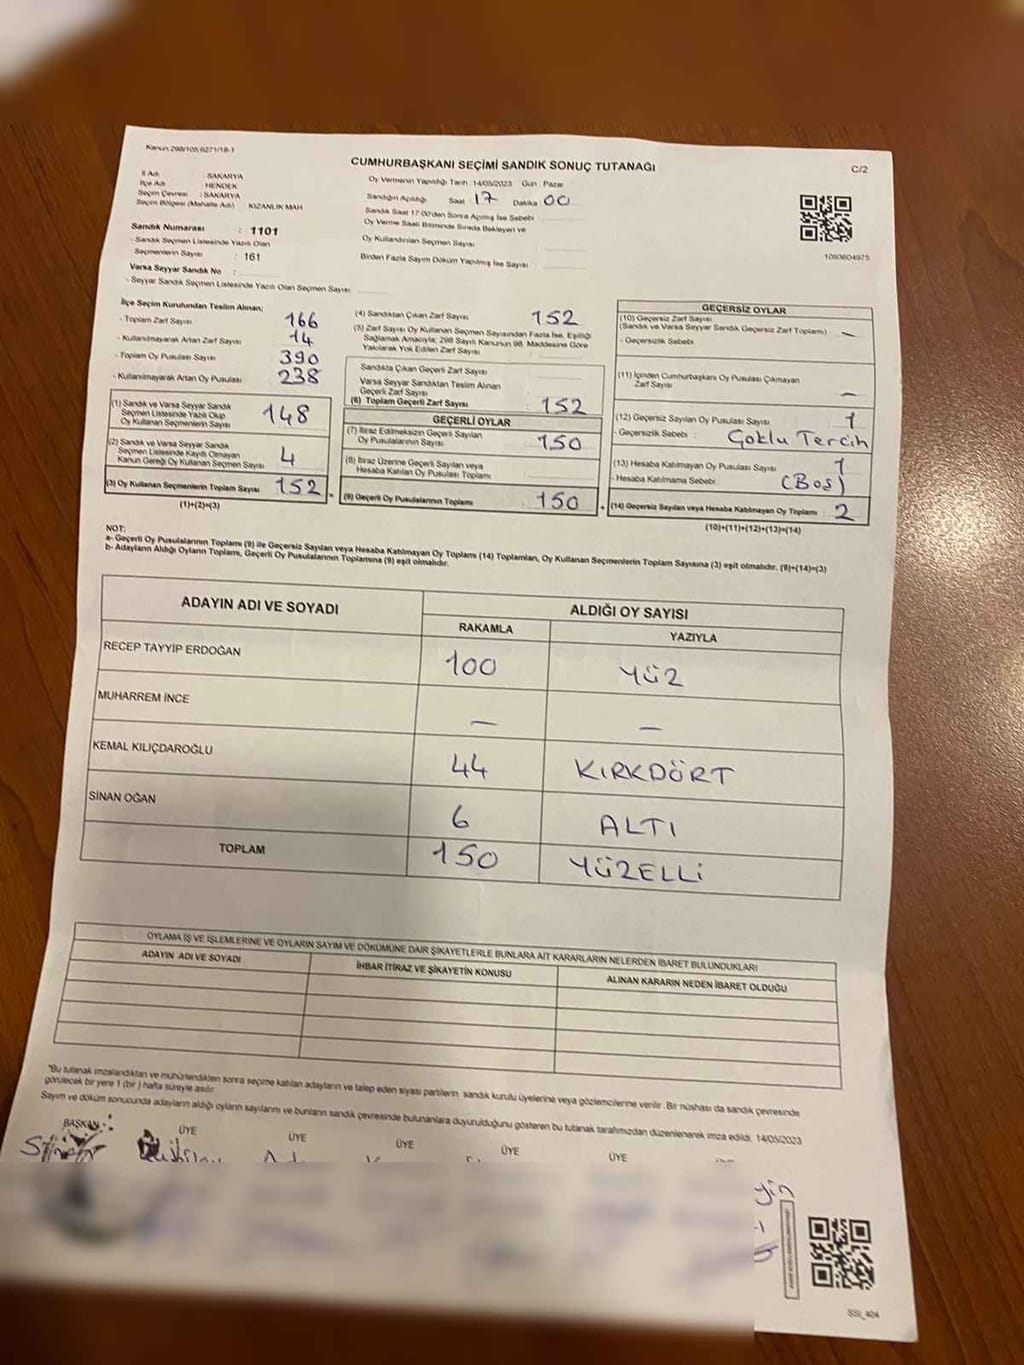 Kanun:298/105:6271/18-1
CUMHURBAŞKANI SEÇİMİ SANDIK SONUÇ TUTANAĞI
C/2
İl Adı : SAKARYA
İlçe Adı : HENDEK
Seçim Çevresi : SAKARYA
Seçim Bölgesi (Mahalle Adı) : KIZANLIK MAH
Sandık Numarası : 1101
- Sandık Seçmen Listesinde Yazılı Olan
Seçmenlerin Sayısı : 161
Varsa Seyyar Sandık No :
- Seyyar Sandık Seçmen Listesinde Yazılı Olan Seçmen Sayısı :
Oy Vermenin Yapıldığı Tarih : 14/05/2023 Gün : Pazar
Sandığın Açıldığı Saat 17 Dakika 00
Sandık Saat 17:00'den Sonra Açılmış İse Sebebi
Oy Verme Saati Bitiminde Sırada Bekleyen ve
Oy Kullandırılan Seçmen Sayısı
Birden Fazla Sayım Döküm Yapılmış İse Sayısı
1093604975
İlçe Seçim Kurulundan Teslim Alınan;
- Toplam Zarf Sayısı : 166
- Kullanılmayarak Artan Zarf Sayısı : 14
- Toplam Oy Pusulası Sayısı : 390
- Kullanılmayarak Artan Oy Pusulası : 238
(1) Sandık ve Varsa Seyyar Sandık
Seçmen Listesinde Yazılı Olup
Oy Kullanan Seçmenlerin Sayısı 148
(2) Sandık ve Varsa Seyyar Sandık
Seçmen Listesinde Kayıtlı Olmayan
Kanun Gereği Oy Kullanan Seçmen Sayısı 4
(3) Oy Kullanan Seçmenlerin Toplam Sayısı 152
(1)+(2)=(3)
(4) Sandıktan Çıkan Zarf Sayısı 152
(5) Zarf Sayısı Oy Kullanan Seçmen Sayısından Fazla İse, Eşitliği
Sağlamak Amacıyla; 298 Sayılı Kanunun 98. Maddesine Göre
Yakılarak Yok Edilen Zarf Sayısı
Sandıkta Çıkan Geçerli Zarf Sayısı
Varsa Seyyar Sandıktan Teslim Alınan
Geçerli Zarf Sayısı
(6) Toplam Geçerli Zarf Sayısı 152
GEÇERLİ OYLAR
(7) İtiraz Edilmeksizin Geçerli Sayılan
Oy Pusulalarının Sayısı 150
(8) İtiraz Üzerine Geçerli Sayılan veya
Hesaba Katılan Oy Pusulası Toplamı
= (9) Geçerli Oy Pusulalarının Toplamı 150
GEÇERSİZ OYLAR
(10) Geçersiz Zarf Sayısı
(Sandık ve Varsa Seyyar Sandık Geçersiz Zarf Toplamı) : —
- Geçersizlik Sebebi :
(11) İçinden Cumhurbaşkanı Oy Pusulası Çıkmayan
Zarf Sayısı —
(12) Geçersiz Sayılan Oy Pusulası Sayısı : 1
- Geçersizlik Sebebi : Çoklu Tercih
(13) Hesaba Katılmayan Oy Pusulası Sayısı : 1
- Hesaba Katılmama Sebebi : (Boş)
+ (14) Geçersiz Sayılan veya Hesaba Katılmayan Oy Toplamı : 2
(10)+(11)+(12)+(13)=(14)
NOT:
a- Geçerli Oy Pusulalarının Toplamı (9) ile Geçersiz Sayılan veya Hesaba Katılmayan Oy Toplamı (14) Toplamları, Oy Kullanan Seçmenlerin Toplam Sayısına (3) eşit olmalıdır. (9)+(14)=(3)
b- Adayların Aldığı Oyların Toplamı, Geçerli Oy Pusulalarının Toplamına (9) eşit olmalıdır.
ADAYIN ADI VE SOYADI ALDIĞI OY SAYISI
RAKAMLA YAZIYLA
RECEP TAYYİP ERDOĞAN 100 YÜZ
MUHARREM İNCE — —
KEMAL KILIÇDAROĞLU 44 KIRKDÖRT
SİNAN OĞAN 6 ALTI
TOPLAM 150 YÜZELLİ
OYLAMA İŞ VE İŞLEMLERİNE VE OYLARIN SAYIM VE DÖKÜMÜNE DAİR ŞİKAYETLERLE BUNLARA AİT KARARLARIN NELERDEN İBARET BULUNDUKLARI
ADAYIN ADI VE SOYADI İHBAR İTİRAZ VE ŞİKAYETİN KONUSU ALINAN KARARIN NEDEN İBARET OLDUĞU
*Bu tutanak imzalandıktan ve mühürlendikten sonra seçime katılan adayların ve talep eden siyasi partilerin sandık kurulu üyelerine veya gözlemcilerine verilir. Bir nüshası da sandık çevresinde
görülecek bir yere 1 (bir) hafta süreyle asılır.
Sayım ve döküm sonucunda adayların aldığı oyların sayılarını ve bunların sandık çevresinde bulunanlara duyurulduğunu gösteren bu tutanak tarafımızdan düzenlenerek imza edildi. 14/05/2023
BAŞKAN ÜYE ÜYE ÜYE ÜYE ÜYE
SSI_404